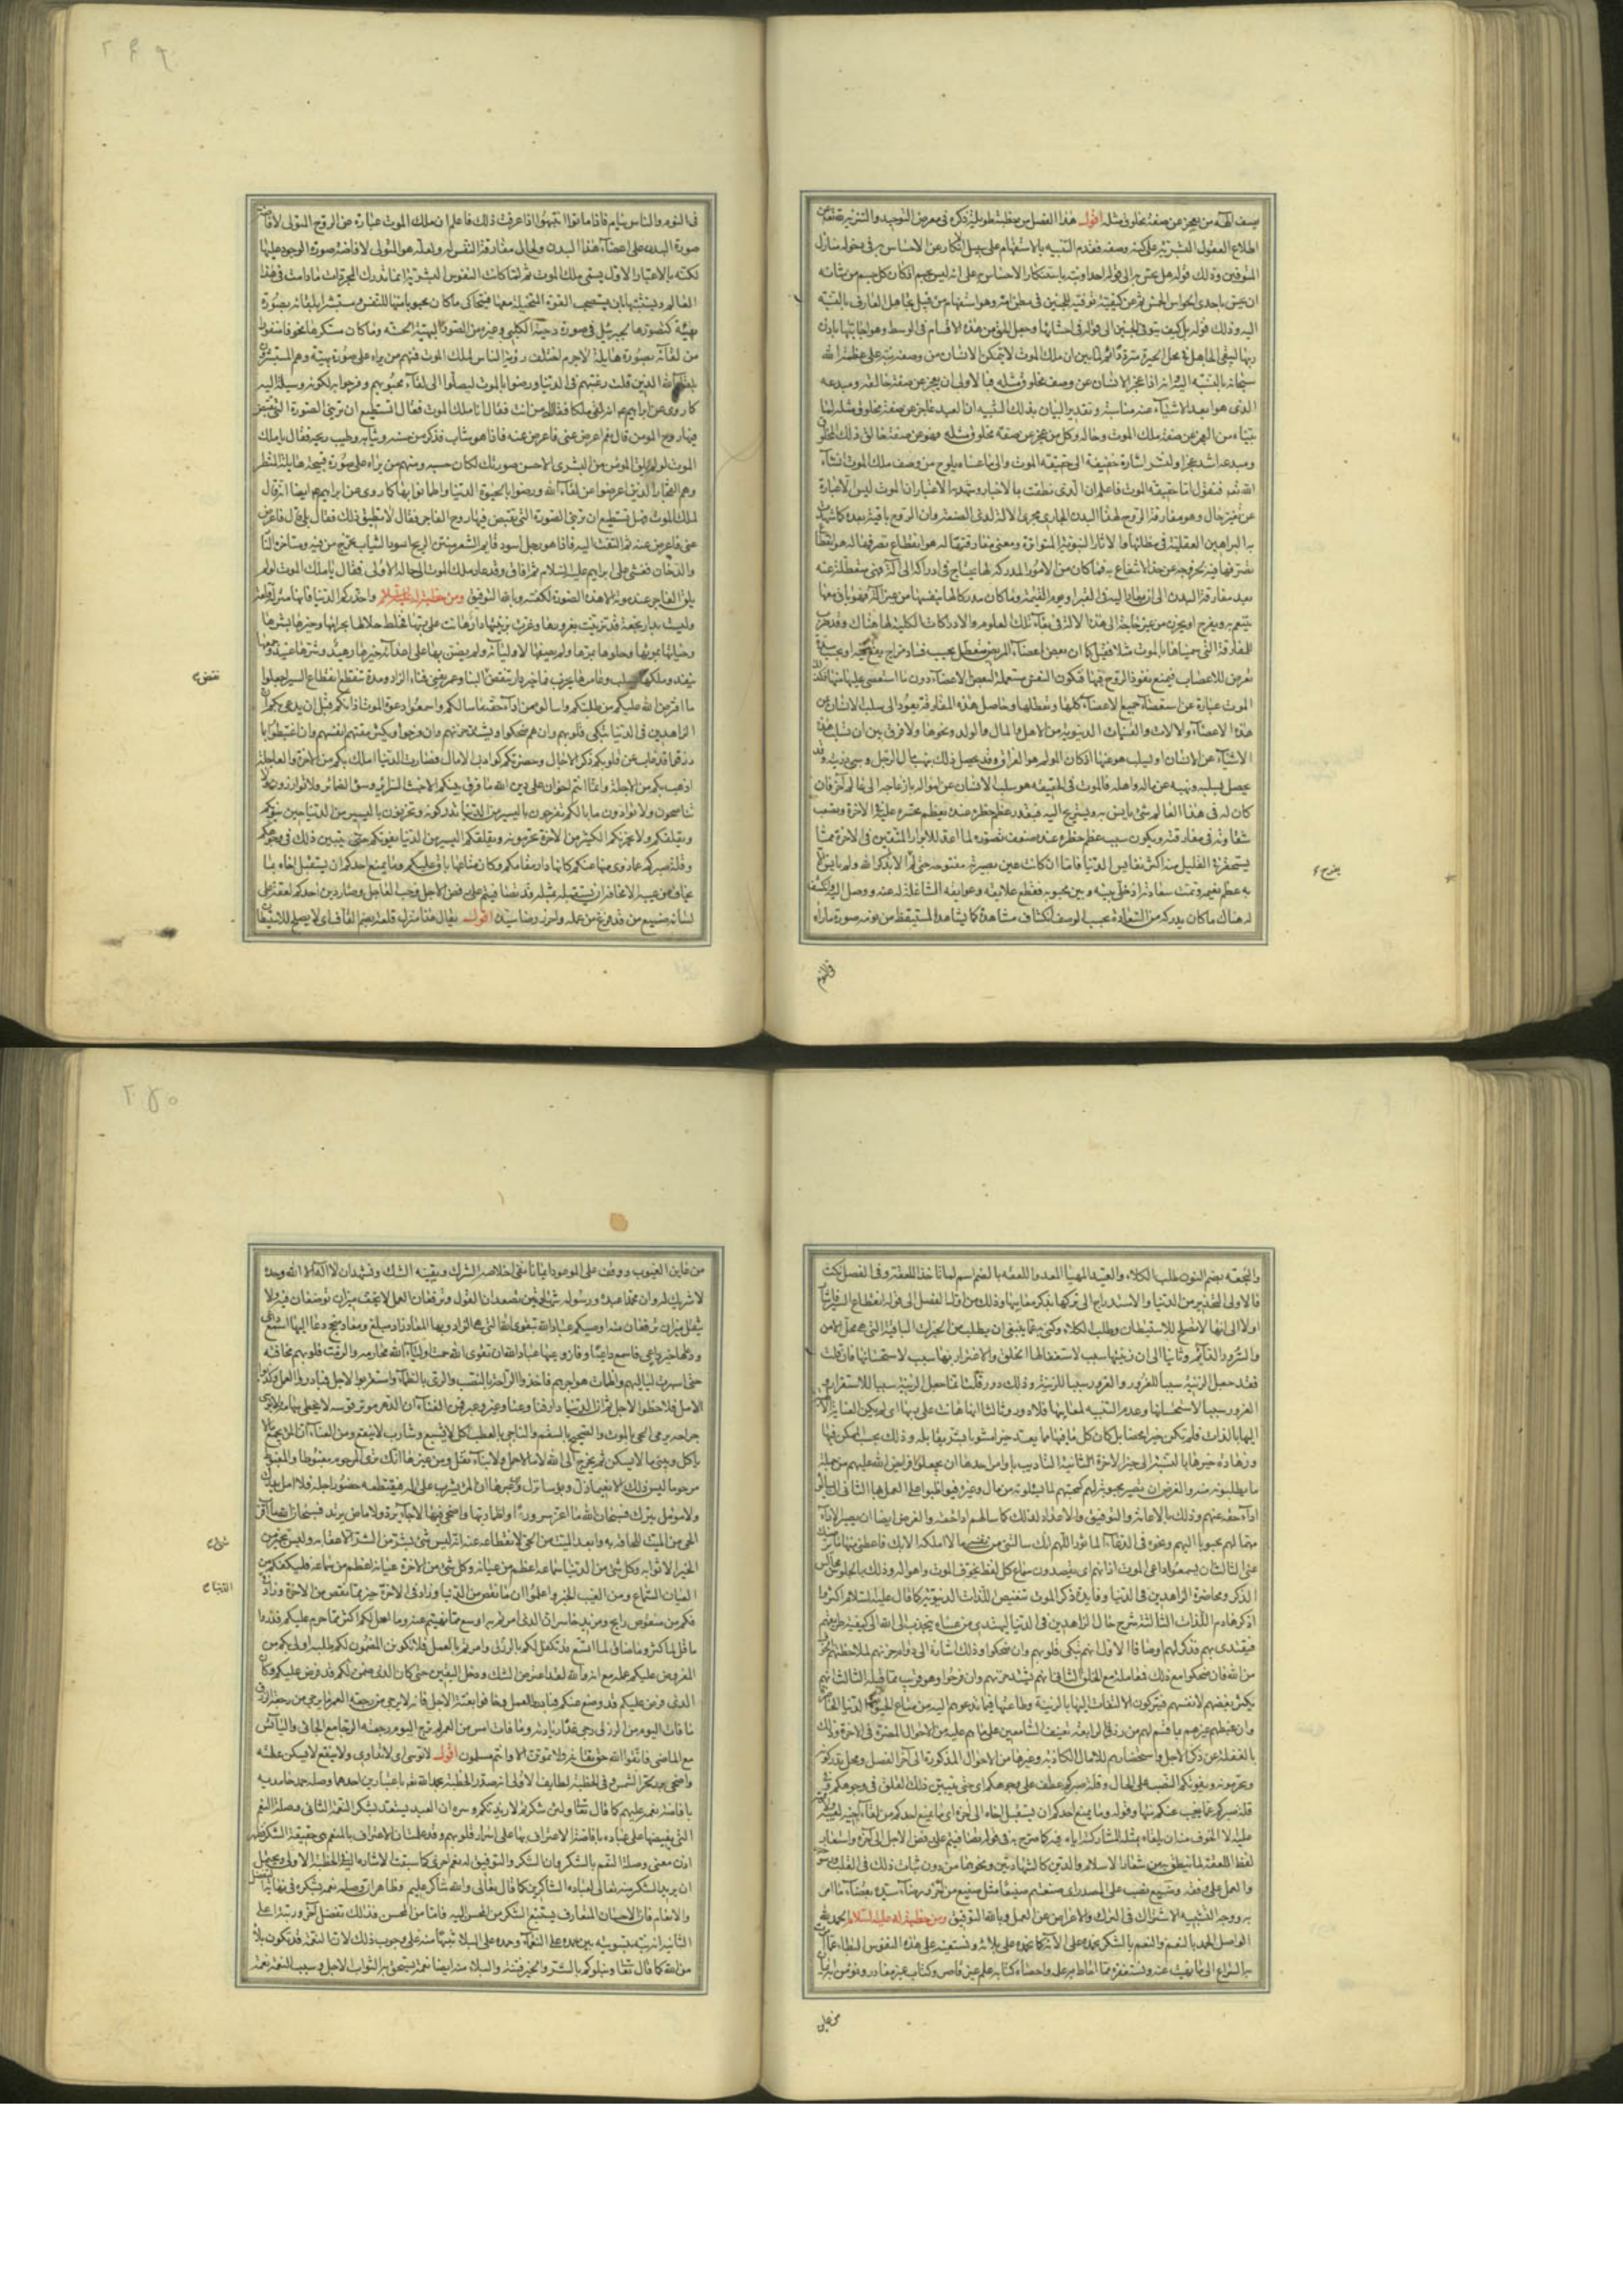 يصف الهه من يعجز عن صفة مخلوق مثله اقول هذا الفصل من خطبة طويلة ذكره في معرض التوحيد والتنزيه
اطلاع العقول البشرية على كنه وصفه فقدم التنبيه بالاستفهام على سبيل الانكار عن الاحساس به في دخوله منازل
المتوفين وذلك قوله هل يحس به الى قوله احدا ونبه باستنكار الاحساس على انه ليس بجسم اذ كان كل جسم من شانه
ان يحس باحدى الحواس الخمس ثم عن كيفية توفيه للجنين في بطن امه وهو استفهام من قبيل تجاهل العارف بالنسبة
اليه وذلك قوله بل كيف يتوفى الجنين الى قوله في احشائها وجعل الحق من هذه الاقسام في الوسط وهو اجابتها باذن
ربها ليبقى الجاهل في محل الحيرة مترددا ثم لما بين ان ملك الموت لا يتمكن الانسان من وصفه نبه على عظمة الله
سبحانه بالنسبة اليه وانه اذا عجز الانسان عن وصف مخلوق مثله فبالاولى ان يعجز عن صفة خالقه ومبدعه
الذي هو ابعد الاشياء عنه مناسبة وتقدير البيان بذلك التنبيه ان العبد عاجز عن صفة مخلوق مثله لما
بيناه من العجز عن صفة ملك الموت وحاله وكل من عجز عن صفة مخلوق مثله فهو عن صفة خالق ذلك المخلوق
ومبدعه اشد عجزا ولنشر اشارة خفيفة الى حقيقة الموت والى ما عساه يلوح من وصف ملك الموت انشاء
الله تع فنقول اما حقيقة الموت فاعلم ان الذي نطقت به الاخبار وشهد به الاعتبار ان الموت ليس الا عبارة
عن تغير حال وهو مفارقة الروح لهذا البدن الجاري مجرى الالة لذي الصنعة وان الروح باقية بعده كما شهدت
به البراهين العقلية في مظانها والاثار النبوية المتواترة ومعنى مفارقتها له هو انقطاع تصرفها له هو انقطاع
تصرفها فيه لخروجه عن حد الانتفاع به فما كان من الامور المدركة لها يحتاج في ادراكه الى آلة فهي متعطلة عنه
بعد مفارقة البدن الى ان تعاد اليه في القبر او يوم القيمة وما كان مدركا لها بنفسها من غير آلة فهو باق معها
يتنعم به ويفرح او يحزن من غير حاجة الى هذه الالة في بقاء تلك العلوم والادراكات الكلية لها هناك
للمفارقة التي سميناها بالموت مثلا فقيل كما ان بعض اعضاء المريض متعطل بحسب فساد مزاج يقع فيه او بحسب شدة
تعرض للاعصاب فيمنع نفوذ الروح فيها فتكون النفس مستعملة لبعض الاعضاء دون ما استعصى عليها منها فكذلك
الموت عبارة عن استعصاء جميع الاعضاء كلها وتعطلها وحاصل هذه المفارقة يعود الى سلب الانسان عن
هذه الاعضاء والالات والقينات الدنيوية من الاهل والمال والولد ونحوها ولا فرق بين ان تسلب هذه
الاشياء عن الانسان او يسلب هو عنها اذ كان المولم هو الفراق وقد يحصل ذلك بنهب مال الرجل وسبي ذريته وقد
يحصل بسلبه ونهبه عن ماله واهله فالموت في الحقيقة هو سلب الانسان عن امواله بازعاجه الى عالم آخر فان
كان له في هذا العالم شيء يانس به ويستريح اليه فبقدر عظم خطره عنده يعظم تحسره عليه في الاخرة وتصعب
شقاوته في مفارقته ويكون سبب عظم خطره عنده ضعف تصوره لما اعد للابرار المتقين في الاخرة مما
يستحقر في القليل منه اكثر نفايس الدنيا فاما ان كانت عين بصيرته مفتوحة حتى لم يفرح الا بذكر الله ولم يانس الا
به عظم نعيمه وتمت سعادته اذ خلى بينه وبين محبوبه فقطع علايقه وعوايقه الشاغلة له عنه ووصل اليه وانكشف
له هناك ما كان يدركه من السعادة بحسب الوصف انكشاف مشاهدة كما يشاهد المستيقظ من نومه صورة ما رآه
يفرح
في النوم
٢٤٩
في النوم والناس نيام فاذا ماتوا انتبهوا اذا عرفت ذلك فاعلم ان ملك الموت عبارة عن الروح المتولى لافاضة
صورة العدم على اعضاء هذا البدن ولحال مفارقة النفس له ولعله هو المتولى لافاضة صورة الوجود عليها
لكنه بالاعتبار الاول يسمى ملك الموت ثم لما كانت النفوس البشرية انما تدرك المجردات ما دامت في هذا
العالم
بهيئة كتصورها لجبرئيل في صورة دحية الكلبي وغيره من الصور البهية الحسنة وما كان مستكرها مخوفا منفورا
من لقائه بصورة هايلة لا جرم اختلف رؤية الناس لملك الموت فمنهم من يراه على صورة بهية وهم المستبشرون
بلقاء الله الذين قلت رغبتهم في الدنيا ورضوا بالموت ليصلوا الى لقاء محبوبهم وفرحوا به لكونه وسيلة اليه
كما روي عن ابراهيم عم انه لقى ملكا فقال له من انت فقال انا ملك الموت فقال اتستطيع ان تريني الصورة التي تقبض
فيها روح المومن قال نعم اعرض عني فاعرض عنه فاذا هو شاب فذكر من حسنه وثيابه وطيب ريحه فقال يا ملك
الموت لو لم يلق المومن من البشرى الا حسن صورتك لكان حسبه ومنهم من يراه على صورة قبيحة هايلة المنظر
وهم الفجار الذين اعرضوا عن لقاء الله ورضوا بالحيوة الدنيا واطمانوا بها كما روي عن ابراهيم عم ايضا انه قال
لملك الموت فهل تستطيع ان تريني الصورة التي تقبض فيها روح الفاجر فقال لا تطيق ذلك فقال بلى قال فاعرض
عني فاعرض عنه ثم التفت اليه فاذا هو رجل اسود قايم الشعر منتن الريح اسود الثياب يخرج من فيه ومناخره النار
والدخان فغشي على ابراهيم عليه السلام ثم افاق وقد عاد ملك الموت الى حاله الاولى فقال يا ملك الموت لو لم
يلق الفاجر عند موته الا هذه الصورة لكفته وبالله التوفيق ومن خطبة له عليه السلام واحذركم الدنيا فانها منزل قلعة
وليست بدار نجعة قد تزينت بغرورها وغرت بزينتها دار هانت على ربها فخلط حلالها بحرامها وخيرها بشرها
وحياتها بموتها وحلوها بمرها ولم يصفها لاوليائه ولم يضن بها على اعدائه خيرها زهيد وشرها عتيد وجمعها
ينفد وملكها يسلب وعامرها يخرب فما خير دار تنقض نقض البناء وعمر يفنى فناء الزاد ومدة تنقطع انقطاع السير اجعلوا
ما افترض الله عليكم من طلبتكم واسالوه من اداء حقه ما سالكم واسمعوا دعوة الموت اذانكم قبل ان يدعى بكم ان
الزاهدين في الدنيا تبكي قلوبهم وان ضحكوا ويشتد حزنهم وان فرحوا ويكثر مقتهم انفسهم وان اغتبطوا بما
رزقوا قد غاب عن قلوبكم ذكر الاجال وحضرتكم كواذب الامال فصارت الدنيا املك بكم من الاخرة والعاجلة
اذهب بكم من الاجلة وانما انتم اخوان على دين الله ما فرق بينكم الا خبث السرائر وسوء الضمائر فلا توازرون ولا
تناصحون ولا تباذلون ولا توادون ما بالكم تفرحون باليسير من الدنيا تدركونه ولا يحزنكم
ويقلقكم اليسير من الدنيا يفوتكم حتى يتبين ذلك في وجوهكم
وقلة صبركم عما زوي منها عنكم كانها دار مقامكم وكان متاعها باق عليكم وما يمنع احدكم ان يستقبل اخاه بما
يخاف من عيبه الا مخافة ان يستقبله بمثله قد تصافيتم على رفض الاجل وحب العاجل وصار دين احدكم لعقة على
لسانه صنيع من قد فرغ من عمله واحرز رضا سيده اقول يقال هذا منزل قلعة بضم القاف اي لا يصلح للاستيطان
نقض
والنجعة بضم النون طلب الكلاء والعتيد المهيا المعد واللعقة بالضم اسم لما تاخذ الملعقة وفي الفصل نكت
فالاولى التحذير من الدنيا والاستدراج الى تركها بذكر معايبها وذلك من اول الفصل الى قوله انقطاع السير فاشار
اولا الى انها لا تصلح للاستيطان وطلب الكلاء وكنى به عما ينبغي ان يطلب من الخيرات الباقية التي هي محل الامن
والسرور القايم وثانيا الى ان زينتها سبب لاستغفالها الخلق والاغترار بها سبب لاستحسانها فان قلت
فقد جعل الزينة سببا للغرور والغرور سببا للزينة وذلك دور قلت انما جعل الزينة سببا للاستغرار
الغرور سببا لاستحسانها وعدم التنبه لمعايبها فلا دور وثالثا انها هانت على ربها اي لم يكن العناية الالهية
اليها بالذات فلم تكن خيرا محضا بل كان كل ما فيها مما يعد خيرا مشوبا بشر يقابله وذلك بحسب الممكن فيها
وزهادة خيرها بالنسبة الى خير الاخرة الثانية التاديب باوامر احدها ان يجعلوا فرايض الله عليهم من جملة
ما يطلبونه منه والغرض ان تصير محبوبة لهم كمحبتهم لما يسئلونه من مال وغيره فيواظبوا على العمل بها الثاني ان يسالوه
اداء حقه عنهم وذلك بالاعانة والتوفيق والاعداد لذلك كما سالهم اداء حقه والغرض ايضا ان يصير الاداء
مهما لهم محبوبا اليهم ونحوه في الدعاء الماثور اللهم انك سالتني من نفسي ما لا املكه الا بك فاعطني منها ما يرضيك
عني الثالث ان يسمعوا داعي الموت اذانهم اي يقصدون سماع كل لفظ يخوف الموت واهواله وذلك بالجلوس مجالس
الذكر ومحاضرة الزاهدين في الدنيا وفايدة ذكر الموت تنغيص اللذات الدنيوية كما قال عليه السلام اكثروا
ذكر هادم اللذات الثالثة شرح حال الزاهدين في الدنيا ليهتدي من عساه ينجذب الى الله الى كيفية طريقهم
فيقتدى بهم وذكر لهم اوصافا الاول انهم تبكي قلوبهم وان ضحكوا وذلك اشارة الى دوام حزنهم لملاحظتهم الخوف
من الله فان ضحكوا مع ذلك فمعاملة مع الخلق الثاني انهم يشتد حزنهم وان فرحوا وهو قريب مما قبله الثالث انهم
يكثر بغضهم لانفسهم فيتركون الالتفات اليها بالزينة وطاعتها فيما تدعوهم اليه من متاع الحيوة الدنيا
وان غبطهم غيرهم بما قسم لهم من رزق الرابعة تعنيف السامعين على ما هم عليه من الاحوال المضرة في الاخرة وذلك
بالغفلة عن ذكر الاجل واستحضارهم للامال الكاذبة وغيرها من الاحوال المذكورة الى آخر الفصل ومحل تدركونه
وتحرمونه ويفوتكم النصب على الحال وقلة صبركم عطف على وجوهكم اي حتى يتبين ذلك القلق في وجوهكم وفي
قلة صبركم عما يغيب عنكم منها وقوله وما يمنع احدكم ان يستقبل اخاه الى آخره اي ما يمنع احدكم من لقاء اخيه
عليه الا الخوف منه ان يلقاه بمثله لمشاركته اياه فيه كما صرح به في قوله تصافيتم على رفض الاجل الى آخره واستعار
لفظ اللعقة لما ينطق به من شعار الاسلام والدين كالشهادتين ونحوهما من دون ثبات ذلك في القلب
والعمل على وفقه وصنيع نصب على المصدر اي صنعتم صنيعا مثل صنيع من احرز رضاء سيده بقضاء ما امر
به ووجه التشبيه الاشتراك في الترك والاعراض عن العمل وبالله التوفيق ومن خطبة له عليه السلام الحمد لله
الواصل الحمد بالنعم والنعم بالشكر نحمده على آلائه كما نحمده على بلائه ونستعينه على هذه النفوس البطاء عما
السراع الى ما نهيت عنه ونستغفره مما احاط به علمه واحصاه كتابه علم غير قاصر وكتاب غير مغادر ونؤمن به ايمان
من عاين
٢٥٠
من عاين الغيوب ووقف على الموعود ايمانا نفى اخلاصه الشرك ويقينه الشك ونشهد ان لا اله الا الله وحده
لا شريك له وان محمدا عبده ورسوله شهادتين تصعدان القول وترفعان العمل لا يخف ميزان توضعان فيه ولا
يثقل ميزان ترفعان منه اوصيكم عباد الله بتقوى الله التي هي الزاد وبها المعاد زاد مبلغ ومعاد منجح دعا اليها اسمع داع
ووعاها خير واع فاسمع داعيها وفاز واعيها عباد الله ان تقوى الله حمت اولياء الله محارمه والزمت قلوبهم مخافته
حتى اسهرت لياليهم واظمات هواجرهم فاخذوا الراحة بالنصب والري بالظماء واستقربوا الاجل فبادروا العمل وكذبوا
الامل فلاحظوا الاجل ثم ان الدنيا دار فناء وعناء وغير وعبر فمن الفناء ان الدهر موتر قوسه لا تخطي سهامه ولا توسى
جراحه يرمي الحي بالموت والصحيح بالسقم والناجي بالعطب آكل لا يشبع وشارب لا ينقع ومن العناء ان المرء يجمع ما لا
ياكل ويبني ما لا يسكن ثم يخرج الى الله لا مالا حمل ولا بناء نقل ومن غيرها انك ترى المرحوم مغبوطا والمغبوط
مرحوما ليس ذلك الا نعيما زل وبؤسا نزل ومن عبرها ان المرء يشرف على امله فيقتطعه حضور اجله فلا امل يدرك
ولا مؤمل يترك فسبحان الله ما اعز سرورها واظما ريها واضحى فيئها لا جاء يرد ولا ماض يرتد فسبحان الله ما اقرب
الحي من الميت للحاقه به وابعد الميت من الحي لانقطاعه عنه انه ليس شيء بشر من الشر الا عقابه وليس شيء بخير من
الخير الا ثوابه وكل شيء من الدنيا سماعه اعظم من عيانه وكل شيء من الاخرة عيانه اعظم من سماعه فليكفكم من
العيان السماع ومن الغيب الخبر واعلموا ان ما نقص من الدنيا وزاد في الاخرة خير مما نقص من الاخرة وزاد في
فكم من منقوص رابح ومزيد خاسر ان الذي امرتم به اوسع مما نهيتم عنه وما احل لكم اكثر مما حرم عليكم فذروا
ما قل لما كثر وما ضاق لما اتسع قد تكفل لكم بالرزق وامرتم بالعمل فلا يكونن المضمون لكم طلبه اولى بكم من
المفروض عليكم عمله مع انه والله لقد اعترض الشك ودخل اليقين حتى كان الذي ضمن لكم قد فرض عليكم وكان
الذي فرض عليكم قد وضع عنكم فبادروا العمل وخافوا بغتة الاجل فانه لا يرجى من رجعة العمر ما يرجى من رجعة الرزق
ما فات اليوم من الرزق رجي غدا زيادته وما فات امس من العمر لم يرج اليوم رجعته الرجاء مع الجائي والياس
مع الماضي فاتقوا الله حق تقاته ولا تموتن الا وانتم مسلمون اقول
وفي الخطبة لطايف الاولى انه صدر الخطبة بحمد الله تع باعتبارين احدهما وصله حمد حامديه
بافاضة نعمه عليهم كما قال تعالى ولئن شكرتم لازيدنكم وسره ان العبد يستعد بشكر النعمة الثاني وصله النعم
التي يفيضها على عباده بافاضة الاعتراف بها على اسرار قلوبهم وقد علمت ان الاعتراف بالنعم هو حقيقة الشكر
اذن معنى وصله النعم بالشكر وان الشكر والتوفيق له نعم اخرى كما سبقت الاشارة اليه في الخطبة الاولى ويحتمل
ان يريد الشكر منه تعالى لعباده الشاكرين كما قال تعالى والله شاكر عليم
والانعام فان الاحسان المتعارف يستتبع الشكر من المحسن اليه فاما من المحسن فذلك تفضل آخر
الثانية انه نبه بتسويته بين حمده على النعماء وحمده على البلاء تنبيها منه على وجوب ذلك لان النعمة قد تكون بلاء
من الله كما قال تعالى ونبلوكم بالشر والخير فتنة والبلاء منه ايضا نعمة يستحق به الثواب الاجل وسبب النعمة نعمة
شيء
الدنيا